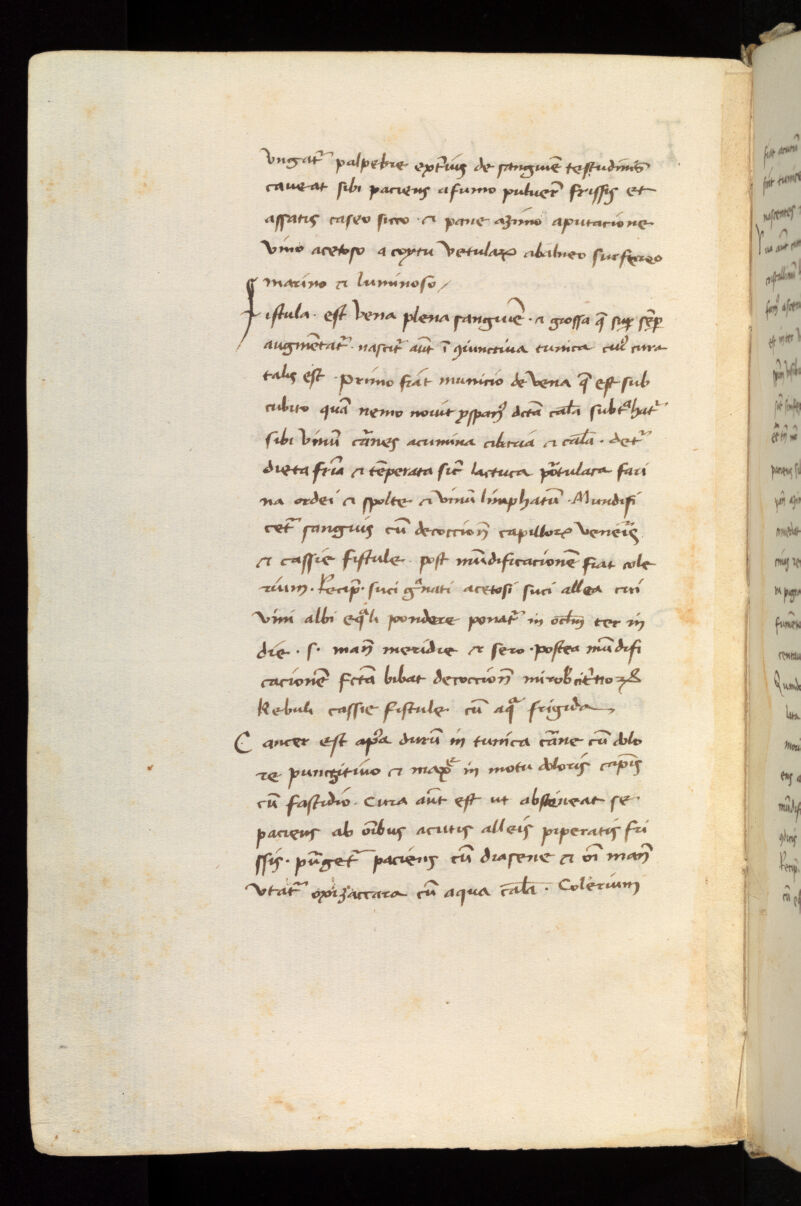 vngat᷑ palpebre ext᷑ius de sanguīe testudinis
caveat sibi paciens a fumo pulver̄ frissis et
assatis caseo sicco · et pane azimo a putacione
vino acetoso a coytu vetulaꝝ a balneo surfereo
marino et luminoso /
Fistula · est vena plena sanguīe · et grossa q̄ suꝑ sēꝑ
augmētat᷑ · nascit᷑ aūt ī ꝯiunctiva tunica cuiꝰ cura
talis est · Primo fiat municio de vena q̄ est sub
cubito quā nemo novit dc̄ā cal̄a subt̄hat᷑
sibi vinū car̄nes acumina cibaria et cal̄a · det᷑
dieta fri̅a et tēperata sic̄ lactuca portulaca fari
na ordei et spolte et vinū limphatū · Mundifi
cet᷑ sanguis cū decoccioñ capilloꝝ veneris
et cassie fistule · post mūdificacionē fiat cole
rium · Recip̄ · suci gnati acetosi suci allea
vini albi eqli pondere ponat᷑ in oc̄lm̄ ter in
die · s · mañ meridie et sero · postea mūdifi
cacionē fc̄tā bibat decoccioñ mirob citrioꝝ
Kebuli cassie fistule cū aq̄ frigida
Cancer est ap̄a durū in tunica car̄ne cū dolo
re pungitivo et max̄e in motu doloris capitis
cū fastidio · Cura aūt est ut abstineat se
paciens ab oībus acutis alleis piperatis fri
ssis · purget᷑ paciens cū diasene et oī mañ
vtat᷑ oxizaccara cū aqua cal̄a · Colerium